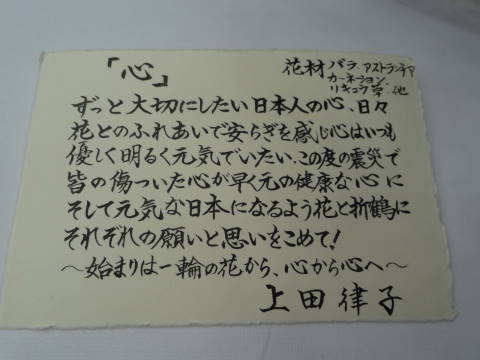 「心」
花材 バラ、アストランティア
カーネーション
リキュウ草、他
ずっと大切にしたい日本人の心、日々
花とのふれあいで安らぎを感じ心はいつも
優しく明るく元気でいたい、この度の震災で
皆の傷ついた心が早く元の健康な心に
そして元気な日本になるよう花と折鶴に
それぞれの願いと思いをこめて!
～始まりは一輪の花から、心から心へ～
上田律子